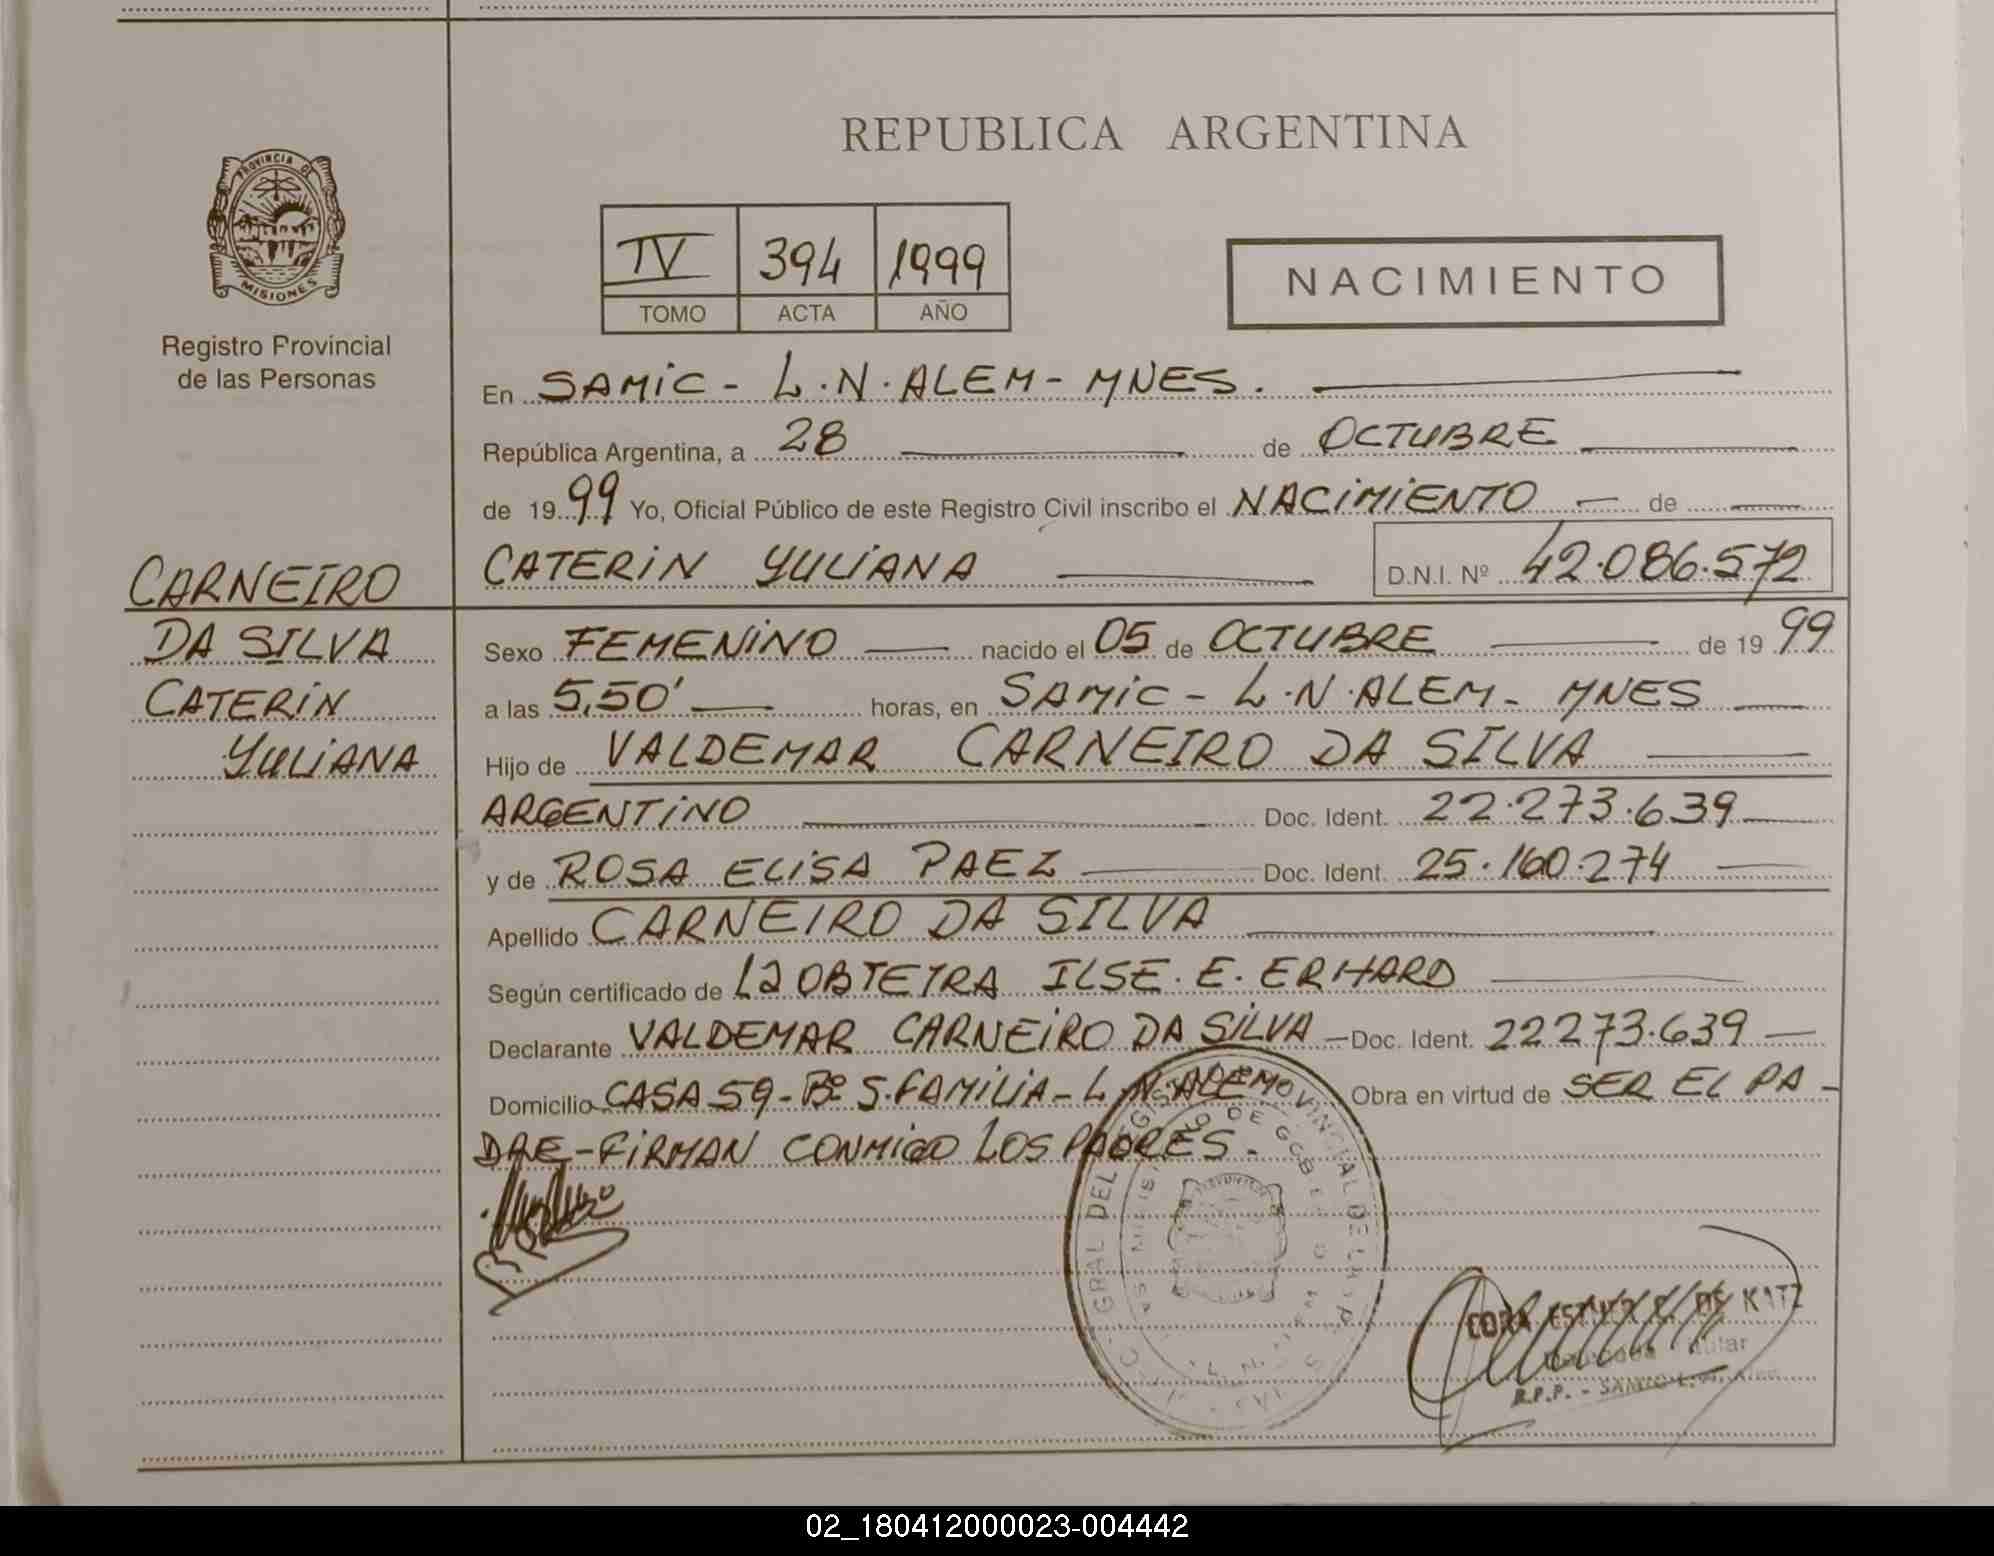 REPUBLICA ARGENTINA
PROVINCIA DE
MISIONES
Registro Provincial
de las Personas
IV 394 1999
TOMO ACTA AÑO
NACIMIENTO
En SAMIC - L.N.ALEM - MNES.
República Argentina, a 28 de OCTUBRE
de 1999 Yo, Oficial Público de este Registro Civil inscribo el NACIMIENTO de
CATERIN YULIANA D.N.I. Nº 42.086.572
CARNEIRO
DA SILVA
CATERIN
YULIANA
Sexo FEMENINO nacido el 05 de OCTUBRE de 1999
a las 5,50' horas, en SAMIC - L.N.ALEM - MNES
Hijo de VALDEMAR CARNEIRO DA SILVA
ARGENTINO Doc. Ident. 22.273.639
y de ROSA ELISA PAEZ Doc. Ident. 25.160.274
Apellido CARNEIRO DA SILVA
Según certificado de La OBTETRA ILSE. E. ERHARD
Declarante VALDEMAR CARNEIRO DA SILVA - Doc. Ident. 22273.639
Domicilio CASA 59 - Bº S.FAMILIA - L.N.ALEM Obra en virtud de SER EL PA-
DRE - FIRMAN CONMIGO LOS PADRES.
GRAL DEL REGISTRO PROVINCIAL DE LAS
ESTHER C. DE KATZ
R.P.P. - SAMIC L.N. Alem
02_180412000023-004442